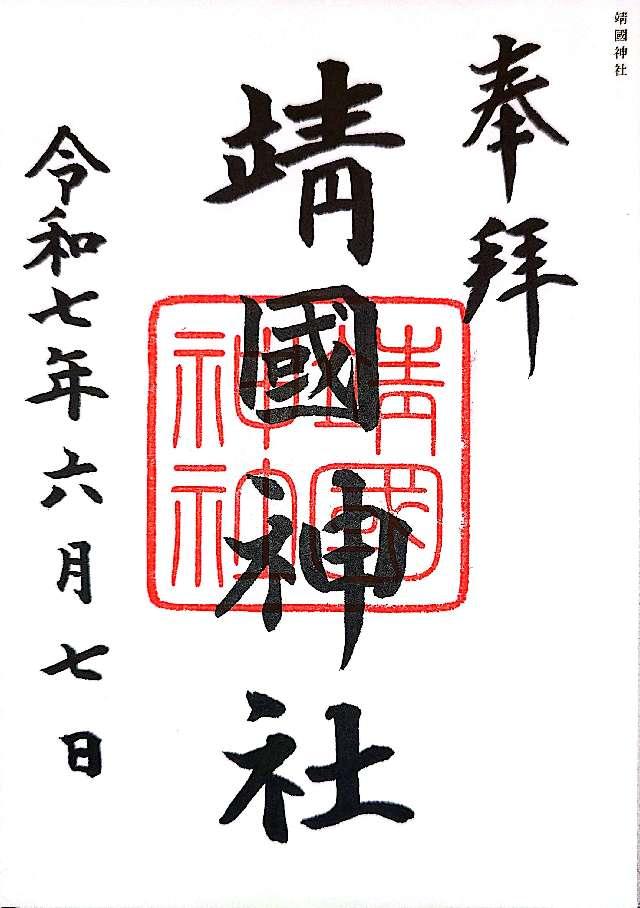 靖國神社
奉拝
靖國神社
靖國
神社
令和七年六月七日